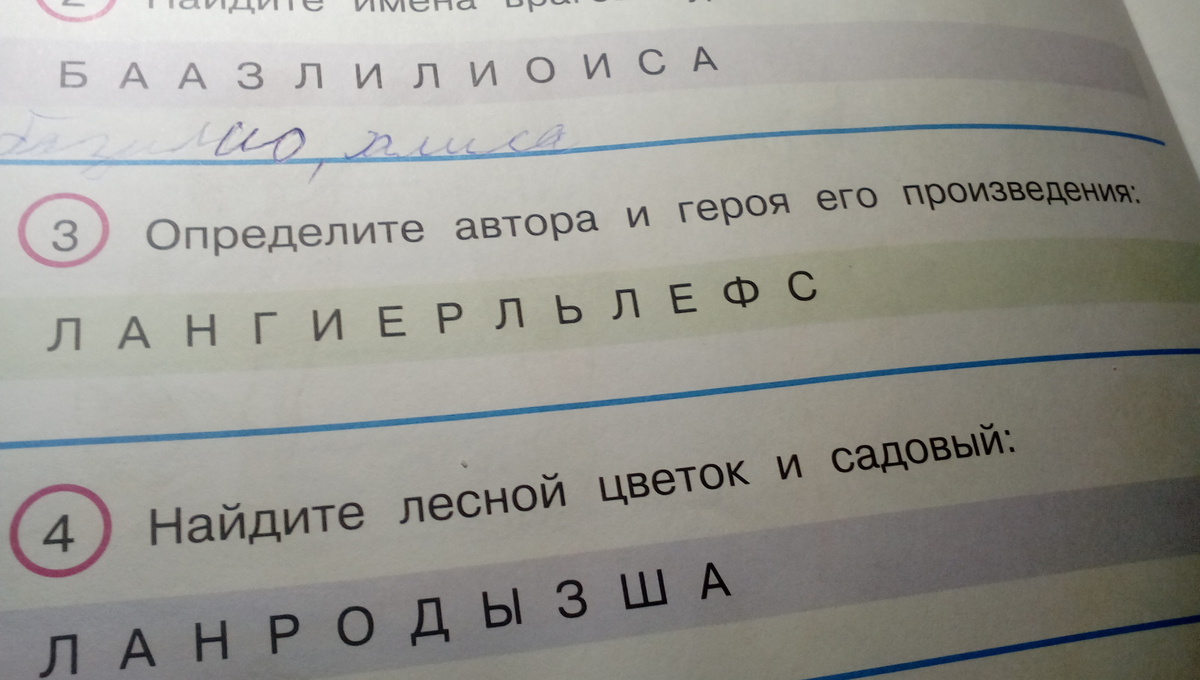 2 Найдите имена
Б А А З Л И Л И О И С А
базилио, алиса
3 Определите автора и героя его произведения:
Л А Н Г И Е Р Л Ь Л Е Ф С
4 Найдите лесной цветок и садовый:
Л А Н Р О Д Ы З Ш А